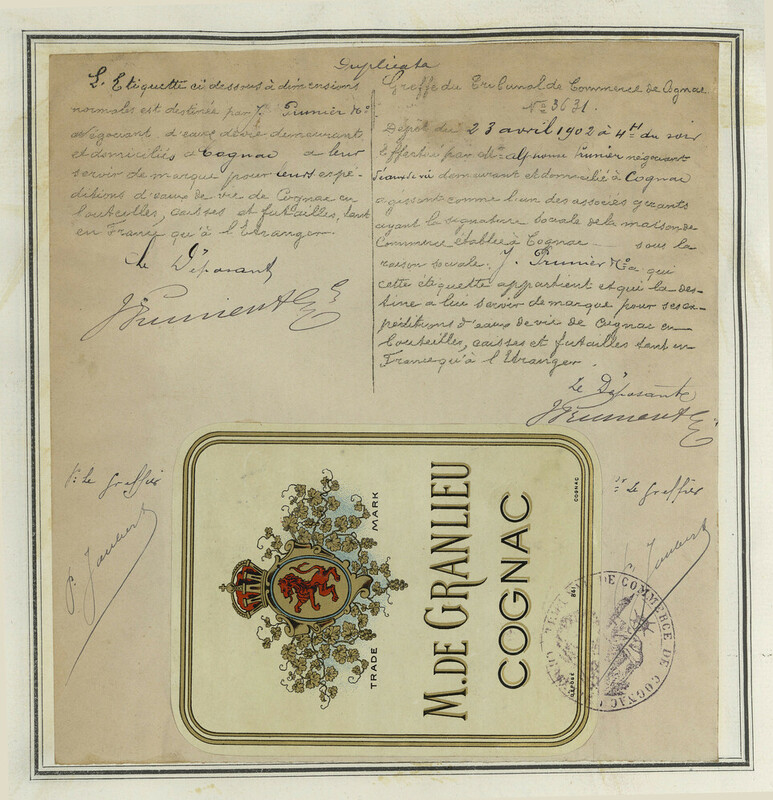 Duplicata
L'Etiquette ci dessous à dimensions
normales est destinée par J. Prunier & Cie
négociant d'eaux de vie demeurant
et domiciliés à Cognac à leur
servir de marque pour leurs expé-
ditions d'eaux de vie de Cognac en
bouteilles, caisses et futailles, tant
en France qu'à l'Etranger.
Le Déposant
J Prunier & Cie
Greffe du Tribunal de Commerce de Cognac
No 3631.
Dépôt du 23 avril 1902 à 4 H du soir
Effectué par Mr Alphonse Prunier négociant
d'eaux de vie demeurant et domicilié à Cognac
agissant comme l'un des associés gérants
ayant la signature sociale de la maison de
Commerce établie à Cognac sous la
raison sociale J. Prunier & Cie à qui
cette étiquette appartient et qui la des-
tine à lui servir de marque pour ses ex-
péditions d'eaux de vie de Cognac en
bouteilles, caisses et futailles tant en
France qu'à l'Etranger.
Le Déposant
J Prunier & Cie
Le Greffier
P. Jaubert
Le Greffier
P. Jaubert
TRADE MARK
M. DE GRANLIEU
COGNAC
COGNAC
DÉPOSÉ
DE COMMERCE DE COGNAC